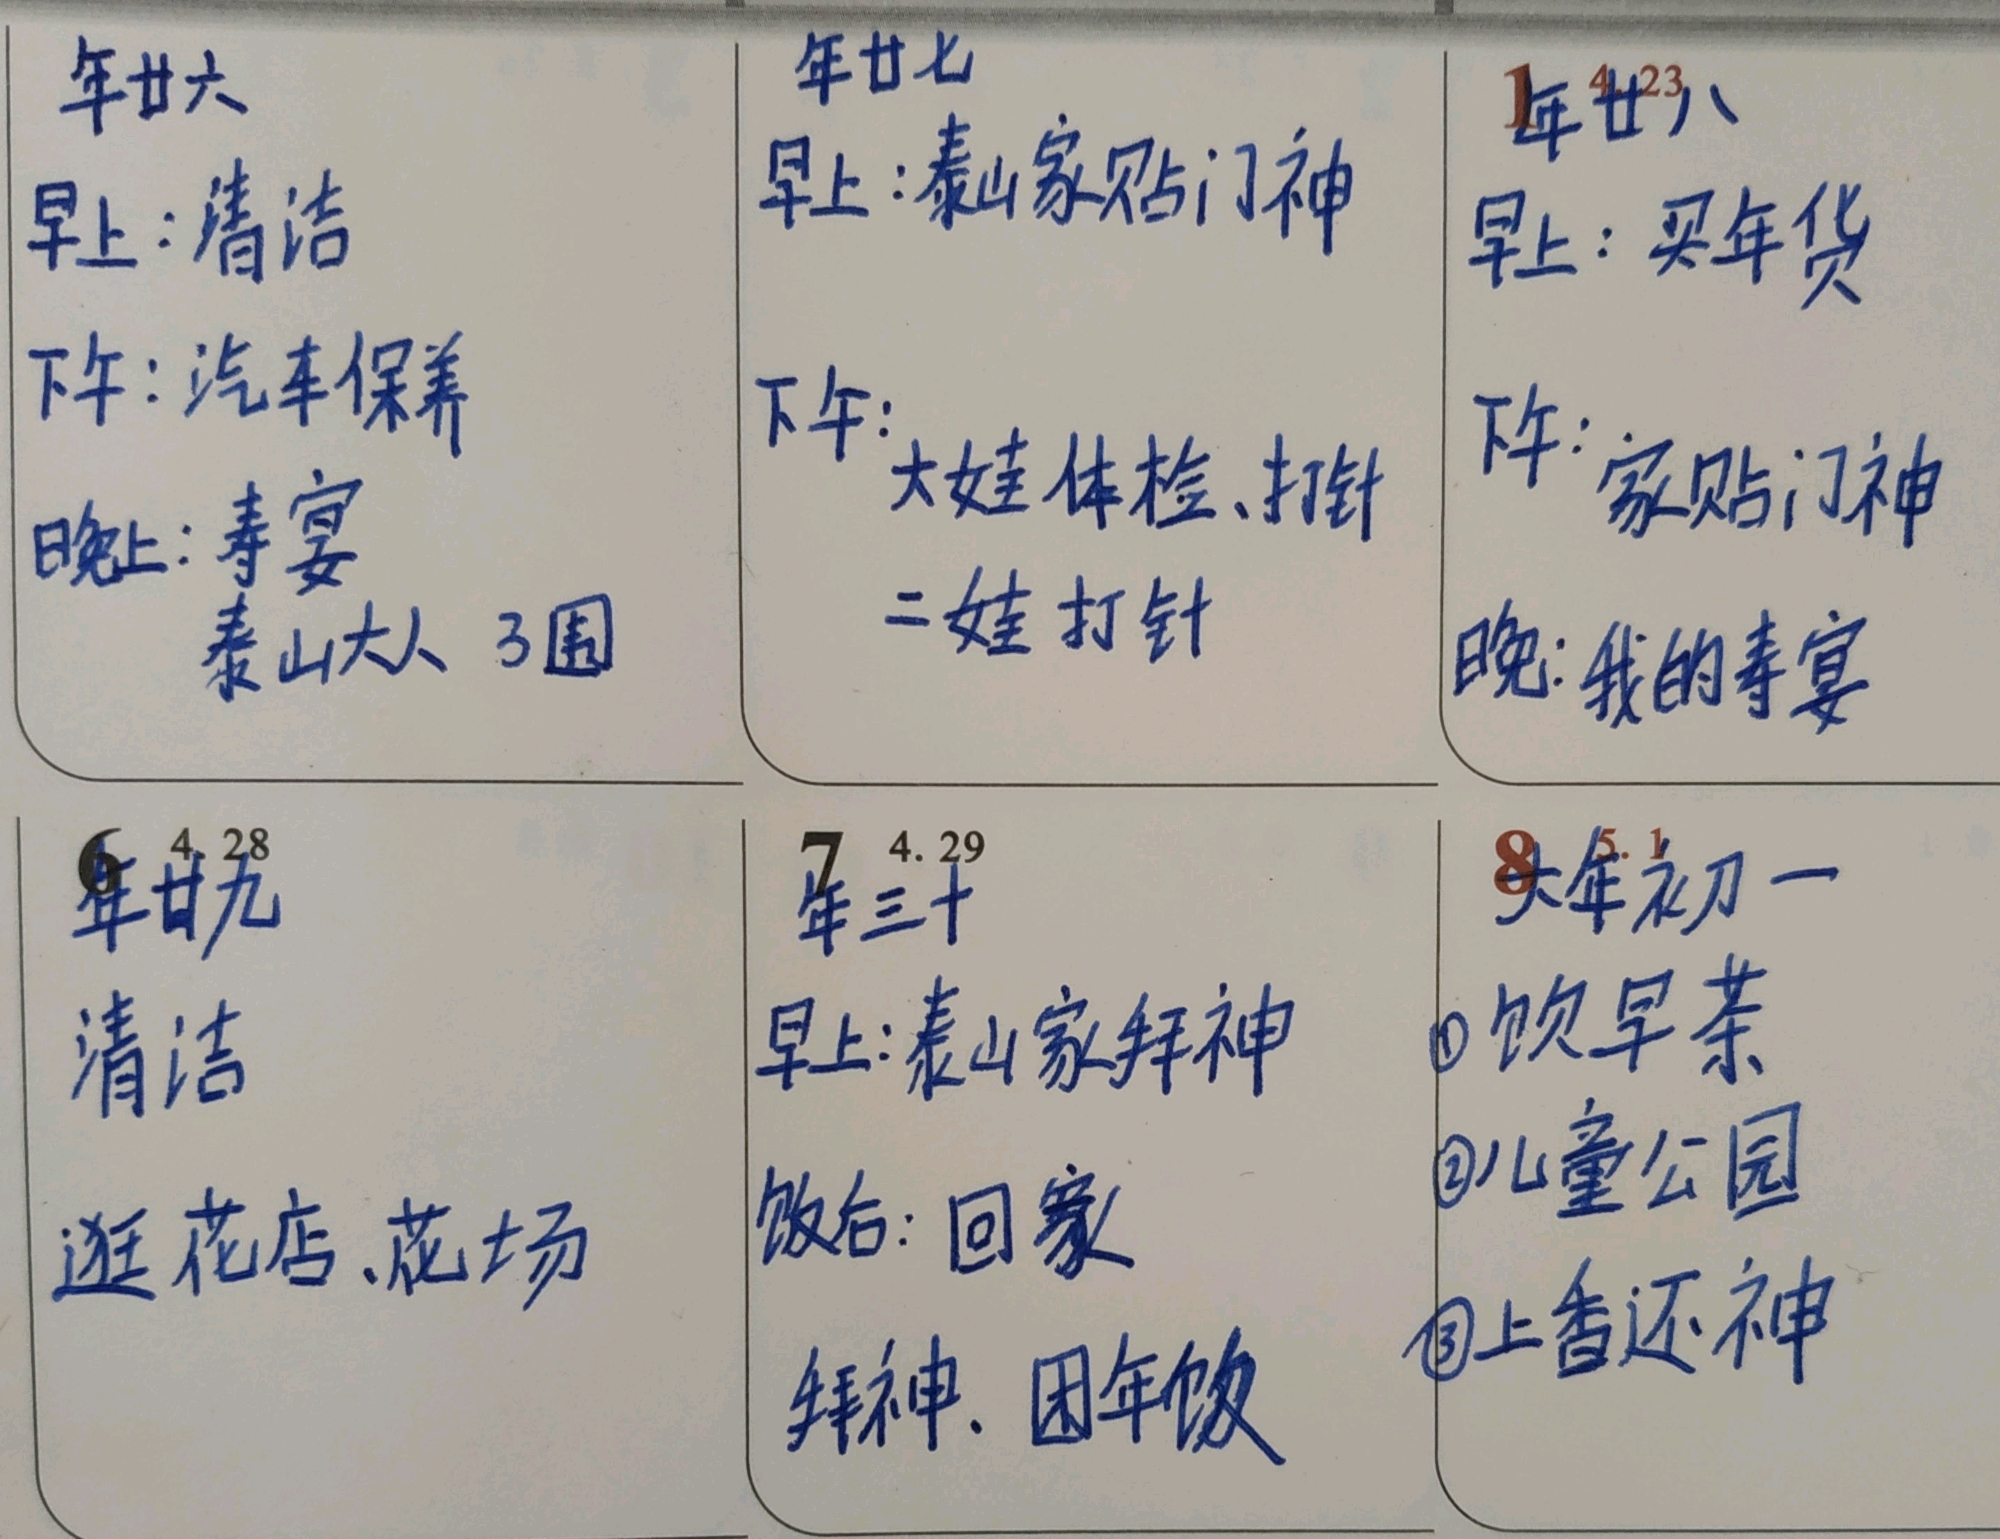 年廿六
早上:清洁
下午:汽车保养
晚上:寿宴
泰山大人 3围
年廿七
早上:泰山家贴门神
下午:
大娃体检、打针
二娃打针
1 4.23
年廿八
早上:买年货
下午:
家贴门神
晚:我的寿宴
6 4.28
年廿九
清洁
逛花店、花场
7 4.29
年三十
早上:泰山家拜神
饭后:回家
拜神、团年饭
8 5.1
大年初一
①饮早茶
②儿童公园
③上香还神